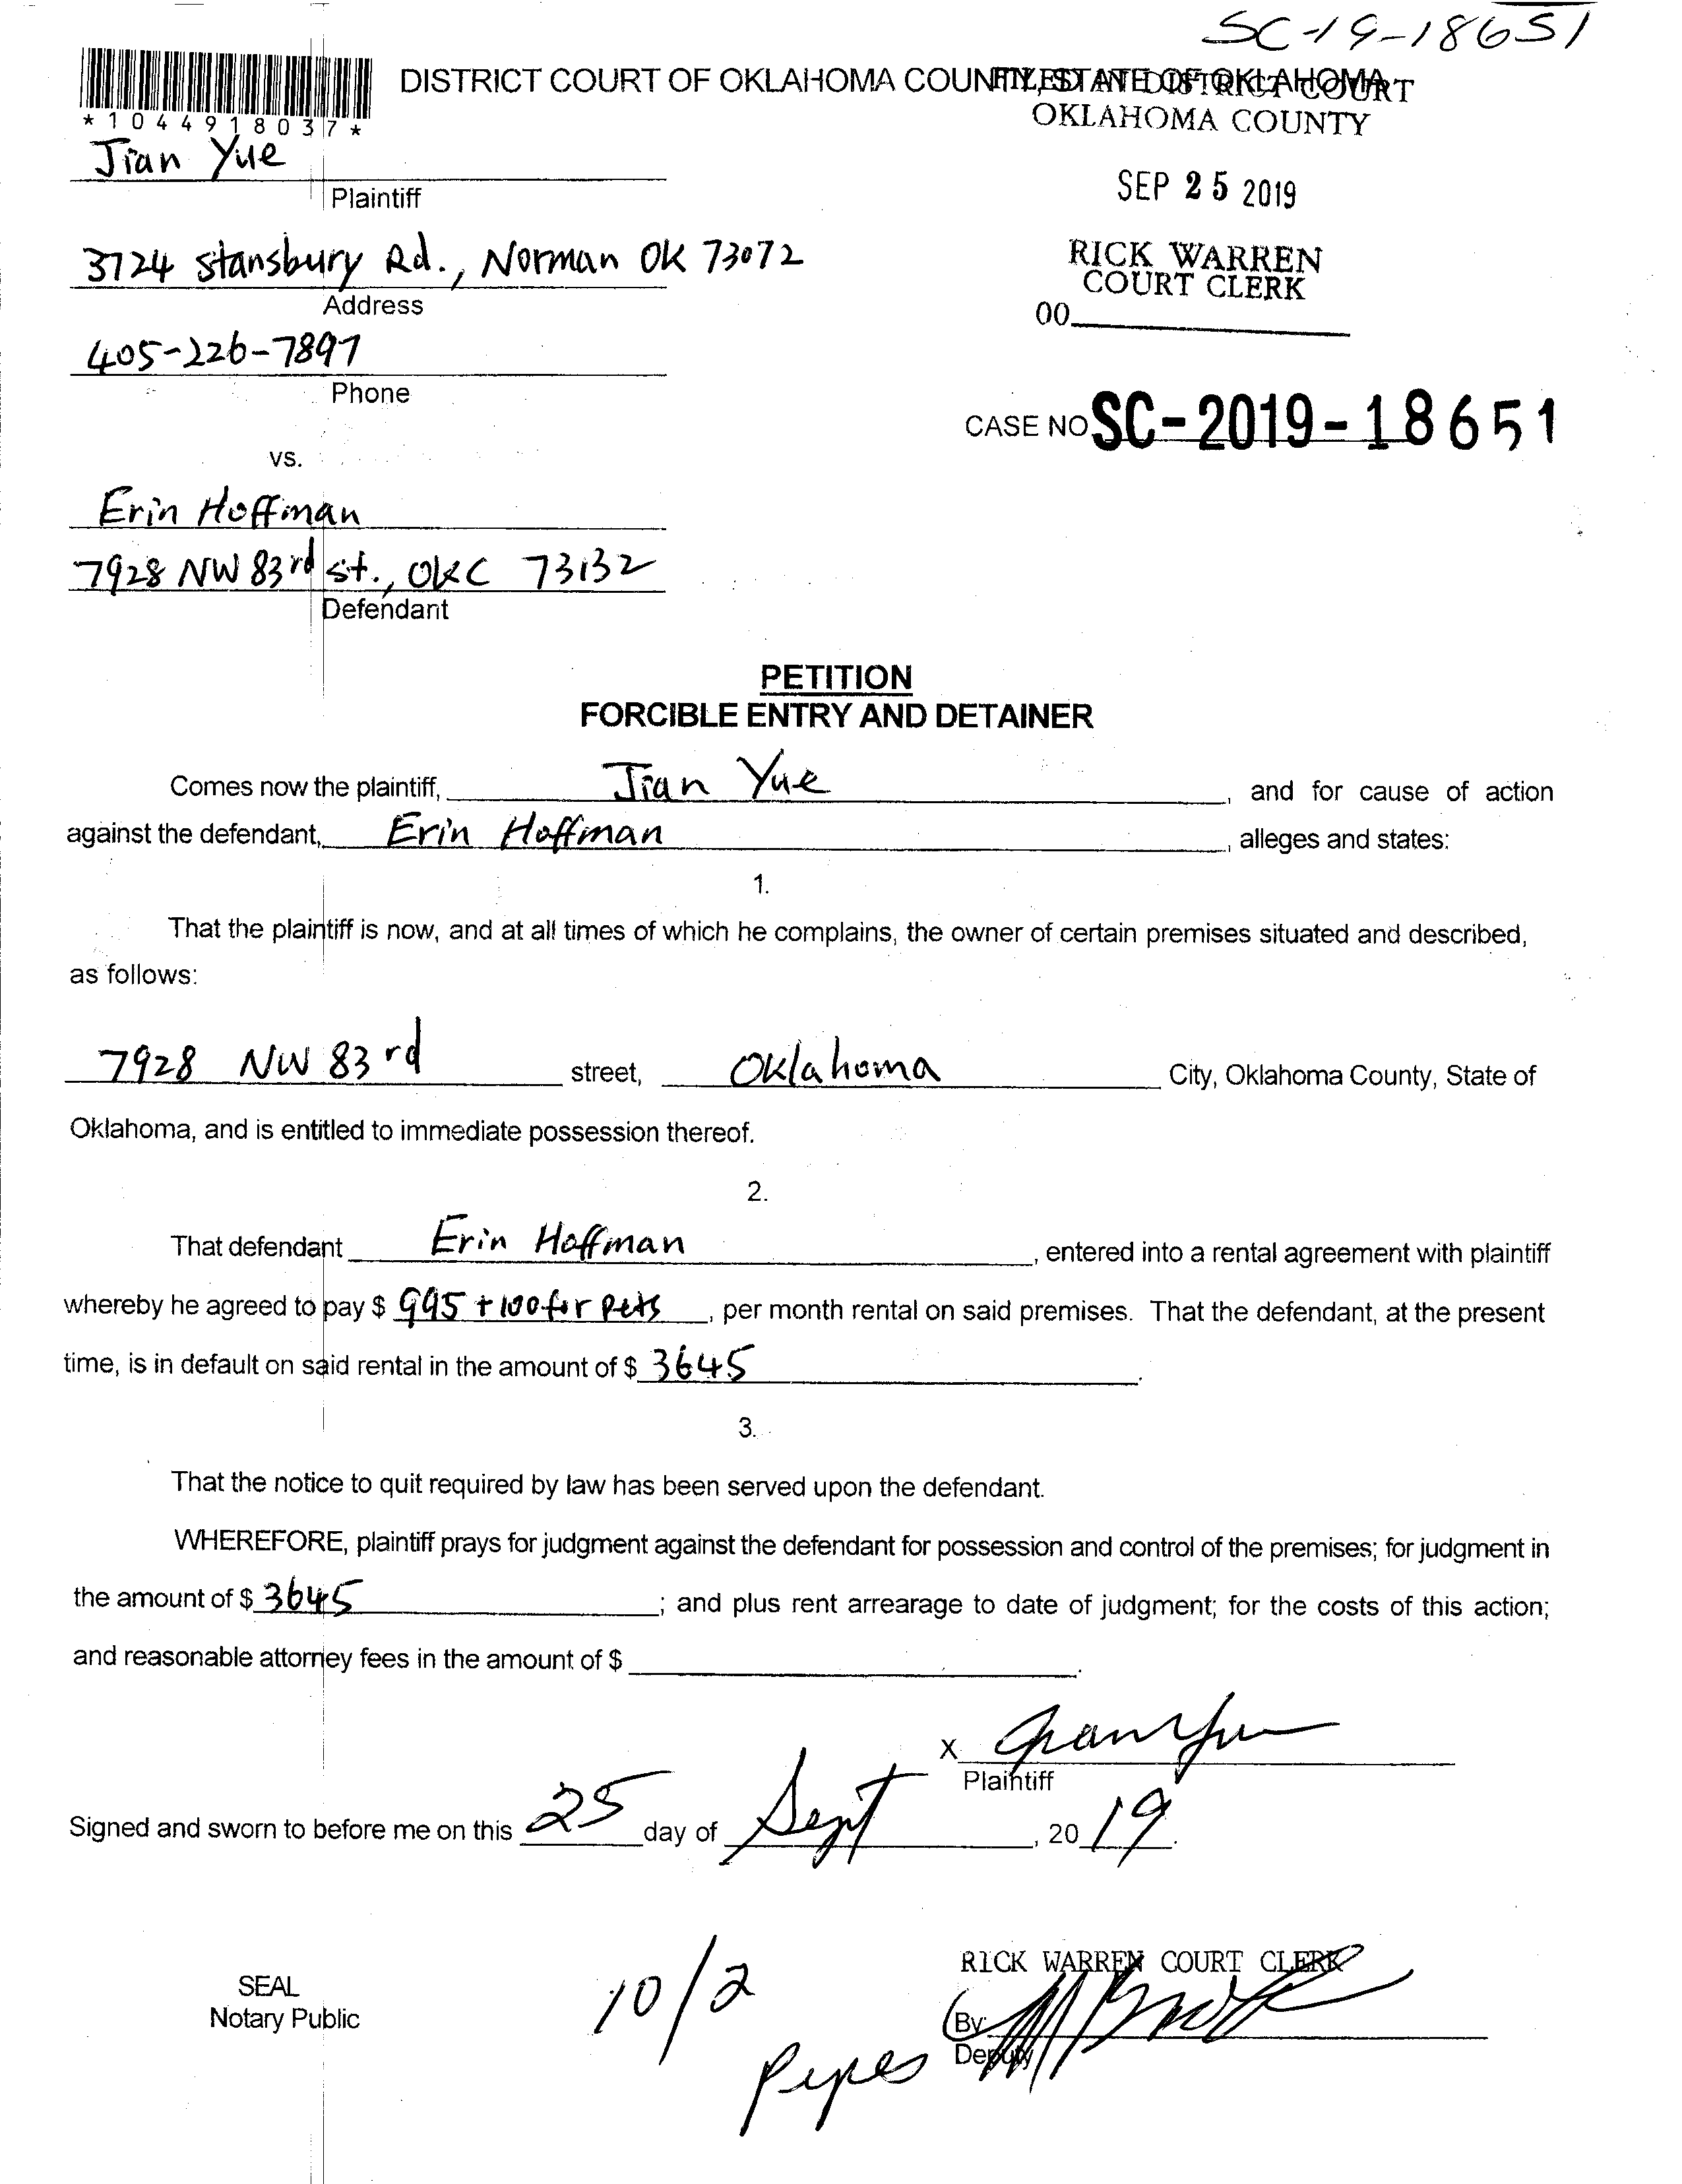 SC-19-18651
DISTRICT COURT OF OKLAHOMA COUNTY, STATE OF OKLAHOMA
FILED IN DISTRICT COURT
OKLAHOMA COUNTY
*1044918037*
Jian Yue
Plaintiff
SEP 25 2019
3724 Stansbury Rd., Norman OK 73072
Address
RICK WARREN
COURT CLERK
00
405-226-7897
Phone
CASE NO SC-2019-18651
vs.
Erin Hoffman
7928 NW 83rd St., OKC 73132
Defendant
PETITION
FORCIBLE ENTRY AND DETAINER
Comes now the plaintiff, Jian Yue, and for cause of action
against the defendant, Erin Hoffman, alleges and states:
1.
That the plaintiff is now, and at all times of which he complains, the owner of certain premises situated and described,
as follows:
7928 NW 83rd street, Oklahoma City, Oklahoma County, State of
Oklahoma, and is entitled to immediate possession thereof.
2.
That defendant Erin Hoffman, entered into a rental agreement with plaintiff
whereby he agreed to pay $ 995 + 100 for pets, per month rental on said premises. That the defendant, at the present
time, is in default on said rental in the amount of $ 3645.
3.
That the notice to quit required by law has been served upon the defendant.
WHEREFORE, plaintiff prays for judgment against the defendant for possession and control of the premises; for judgment in
the amount of $ 3645; and plus rent arrearage to date of judgment; for the costs of this action;
and reasonable attorney fees in the amount of $ .
X Jian Yue
Plaintiff
Signed and sworn to before me on this 25 day of Sept, 2019.
RICK WARREN COURT CLERK
SEAL
Notary Public
10/2
By:
Deputy
Pipes